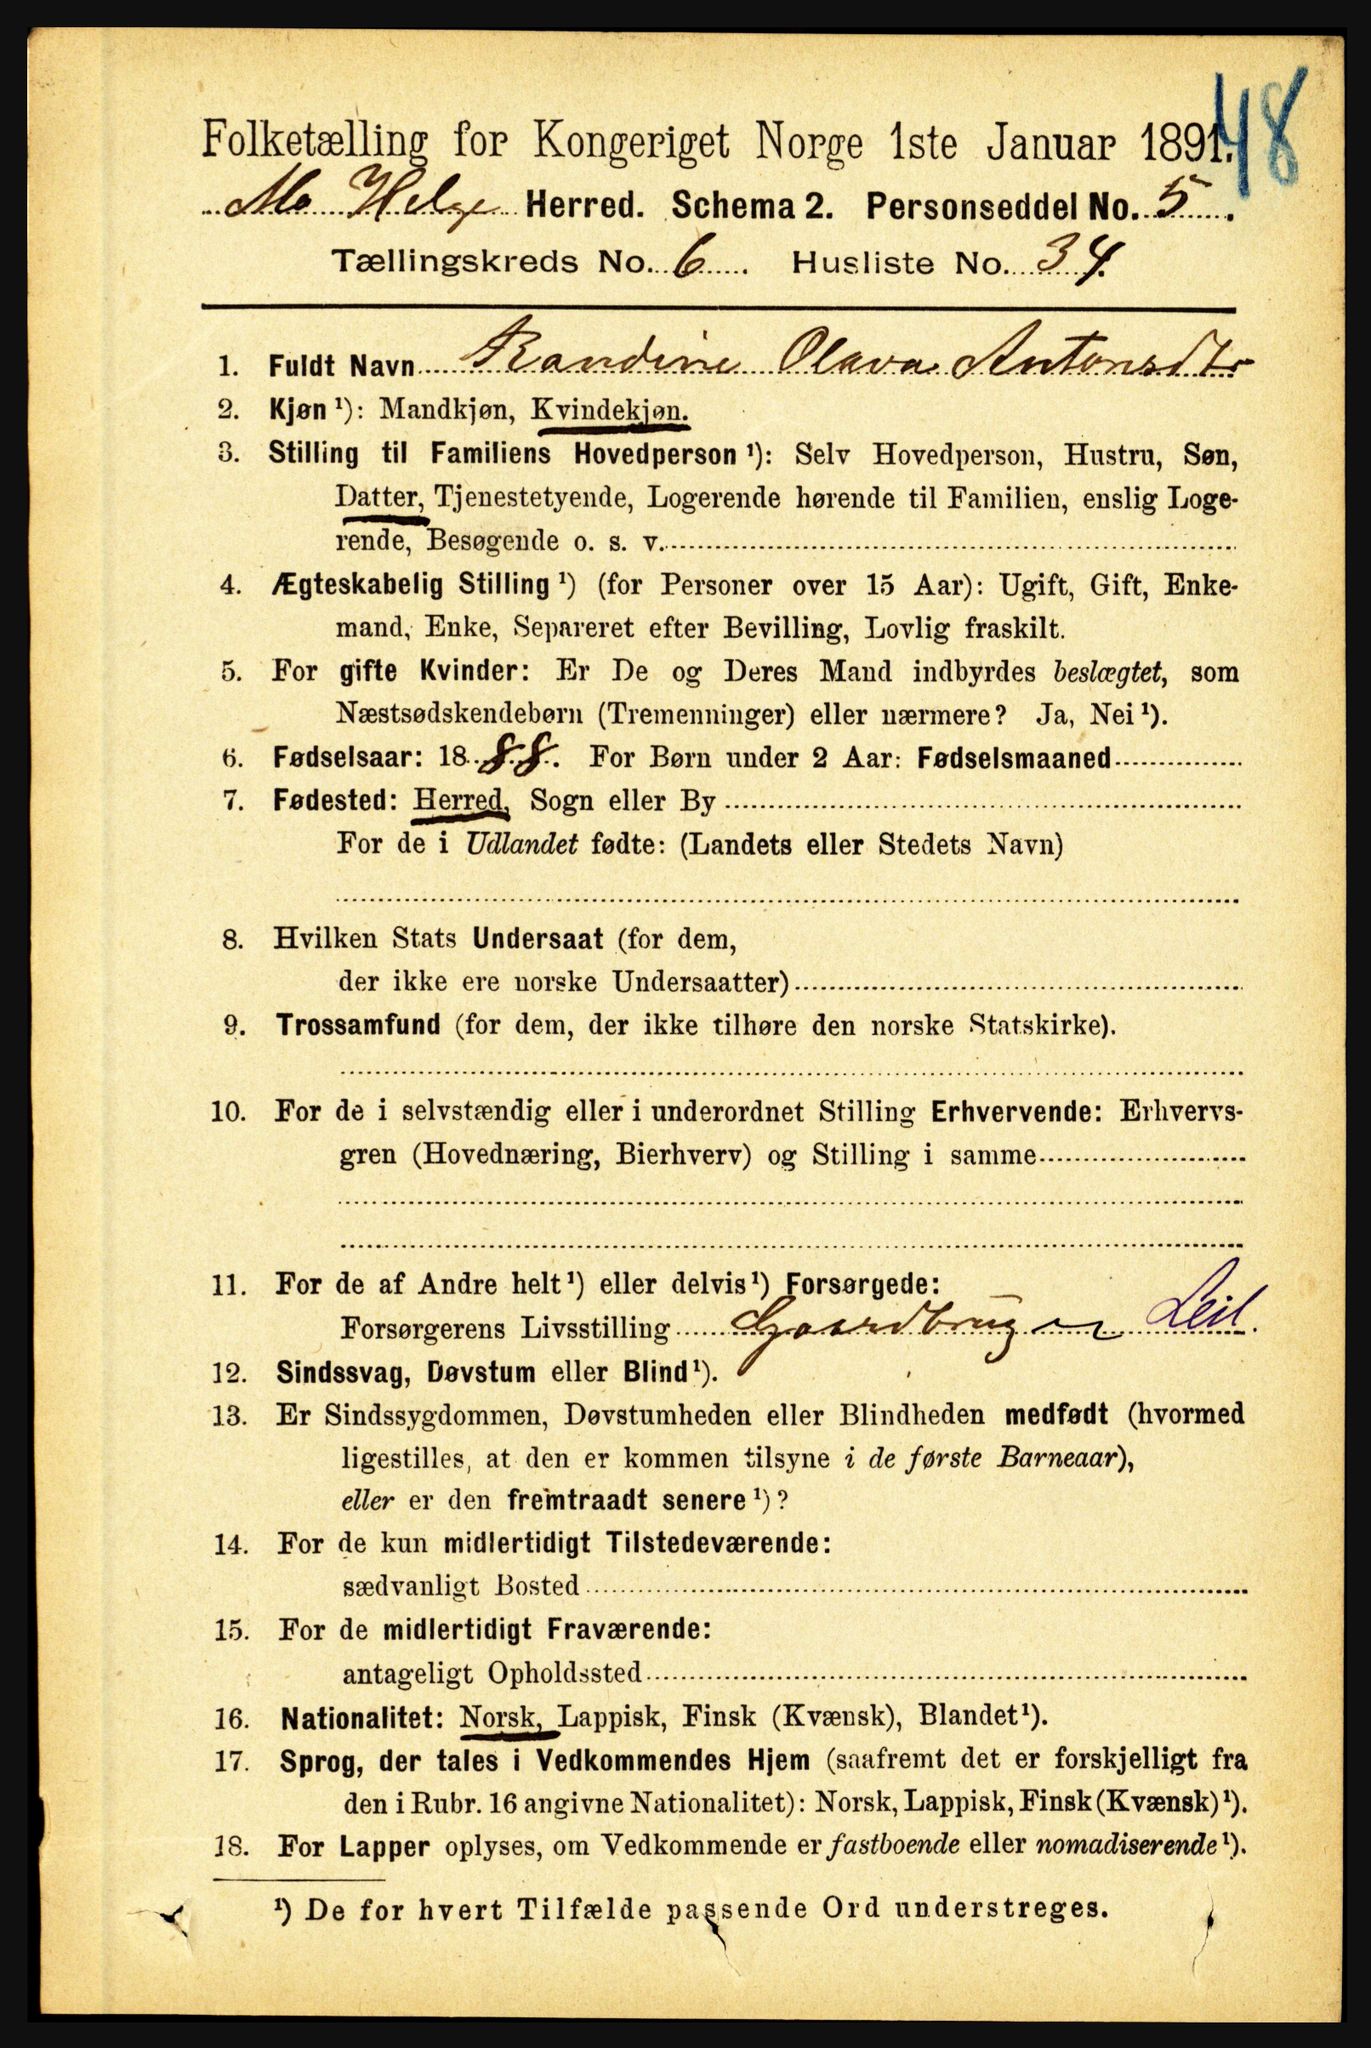 48
Folketælling for Kongeriget Norge 1ste Januar 1891.
Mo Helge Herred. Schema 2. Personseddel No. 5.
Tællingskreds No. 6. Husliste No. 34.
1. Fuldt Navn Randine Olava Antonsdtr
2. Kjøn ¹): Mandkjøn, Kvindekjøn.
3. Stilling til Familiens Hovedperson ¹): Selv Hovedperson, Hustru, Søn,
Datter, Tjenestetyende, Logerende hørende til Familien, enslig Loge-
rende, Besøgende o. s. v.
4. Ægteskabelig Stilling ¹) (for Personer over 15 Aar): Ugift, Gift, Enke-
mand, Enke, Separeret efter Bevilling, Lovlig fraskilt.
5. For gifte Kvinder: Er De og Deres Mand indbyrdes beslægtet, som
Næstsødskendebørn (Tremenninger) eller nærmere? Ja, Nei ¹).
6. Fødselsaar: 1888. For Børn under 2 Aar: Fødselsmaaned
7. Fødested: Herred, Sogn eller By
For de i Udlandet fødte: (Landets eller Stedets Navn)
8. Hvilken Stats Undersaat (for dem,
der ikke ere norske Undersaatter)
9. Trossamfund (for dem, der ikke tilhøre den norske Statskirke).
10. For de i selvstændig eller i underordnet Stilling Erhvervende: Erhvervs-
gren (Hovednæring, Bierhverv) og Stilling i samme
11. For de af Andre helt ¹) eller delvis ¹) Forsørgede:
Forsørgerens Livsstilling Gaardbruger Leil.
12. Sindssvag, Døvstum eller Blind ¹).
13. Er Sindssygdommen, Døvstumheden eller Blindheden medfødt (hvormed
ligestilles, at den er kommen tilsyne i de første Barneaar),
eller er den fremtraadt senere ¹)?
14. For de kun midlertidigt Tilstedeværende:
sædvanligt Bosted
15. For de midlertidigt Fraværende:
antageligt Opholdssted
16. Nationalitet: Norsk, Lappisk, Finsk (Kvænsk), Blandet ¹).
17. Sprog, der tales i Vedkommendes Hjem (saafremt det er forskjelligt fra
den i Rubr. 16 angivne Nationalitet): Norsk, Lappisk, Finsk (Kvænsk) ¹).
18. For Lapper oplyses, om Vedkommende er fastboende eller nomadiserende ¹).
¹) De for hvert Tilfælde passende Ord understreges.